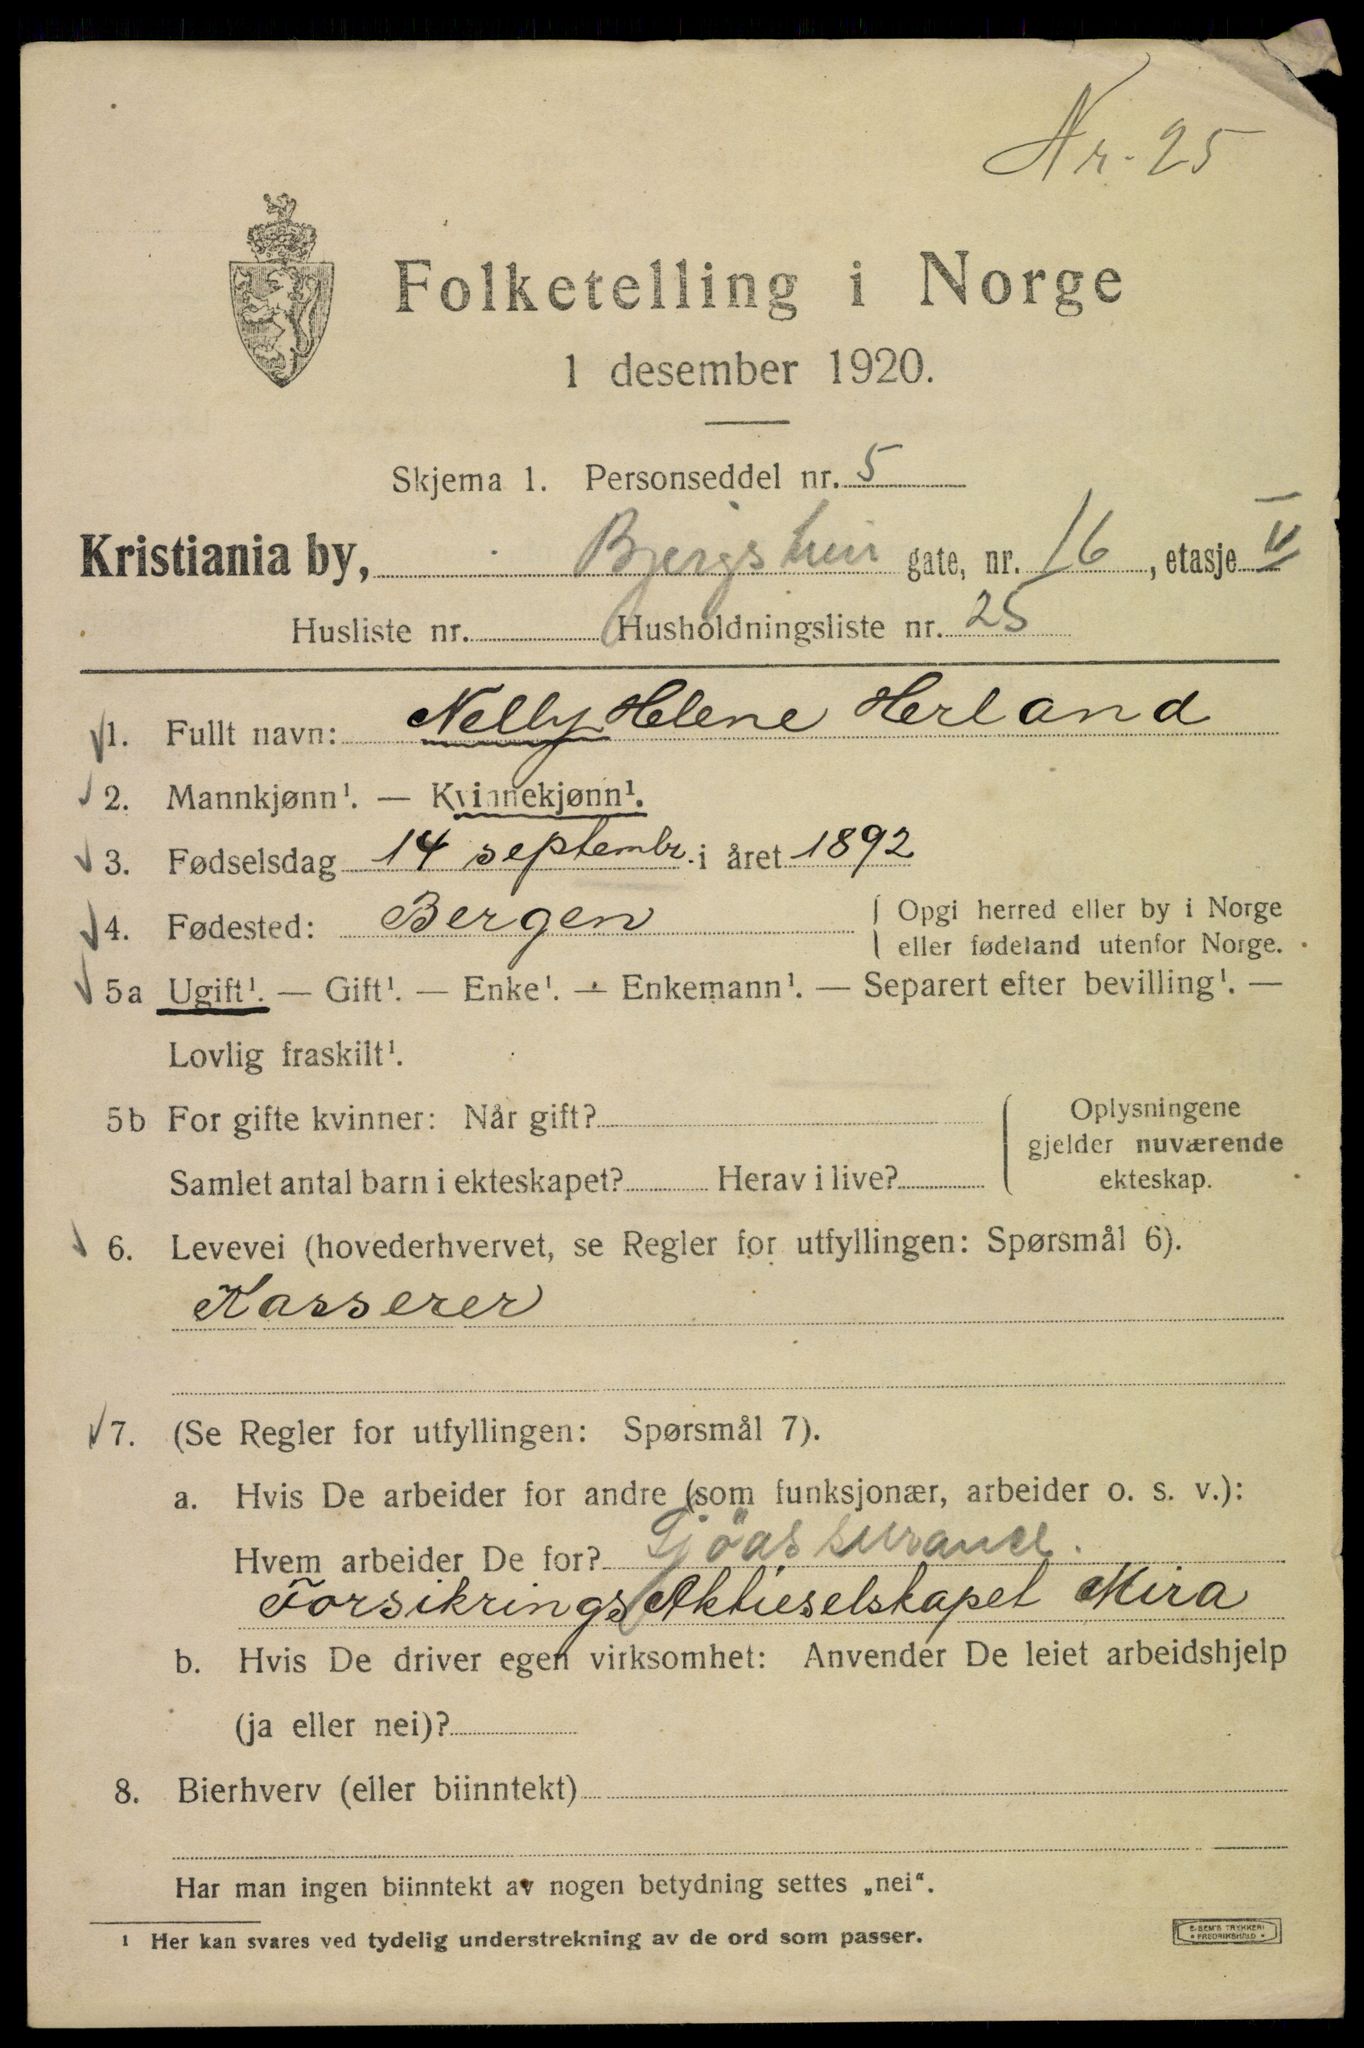 Nr. 25
Folketelling i Norge
1 desember 1920.
Skjema 1. Personseddel nr. 5
Kristiania by, Bjergstien gate, nr. 16, etasje II
Husliste nr. Husholdningsliste nr. 25
1. Fullt navn: Nelly Helene Herland
2. Mannkjønn¹. — Kvinnekjønn¹.
3. Fødselsdag 14 septembr. i året 1892
4. Fødested: Bergen { Opgi herred eller by i Norge
eller fødeland utenfor Norge.
5a Ugift¹. — Gift¹. — Enke¹. — Enkemann¹. — Separert efter bevilling¹. —
Lovlig fraskilt¹.
5b For gifte kvinner: Når gift? { Oplysningene
gjelder nuværende
Samlet antal barn i ekteskapet? Herav i live? ekteskap.
6. Levevei (hovederhvervet, se Regler for utfyllingen: Spørsmål 6).
Kasserer
7. (Se Regler for utfyllingen: Spørsmål 7).
a. Hvis De arbeider for andre (som funksjonær, arbeider o. s. v.):
Hvem arbeider De for? Sjöassurance.
Forsikrings Aktieselskapet Mira
b. Hvis De driver egen virksomhet: Anvender De leiet arbeidshjelp
(ja eller nei)?
8. Bierhverv (eller biinntekt)
Har man ingen biinntekt av nogen betydning settes „nei“.
¹ Her kan svares ved tydelig understrekning av de ord som passer.
E. SEM'S TRYKKERI
FREDRIKSHALD